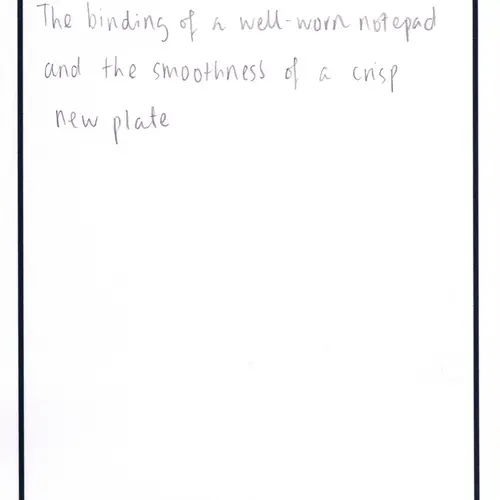 The binding of a well-worn notepad
and the smoothness of a crisp
new plate